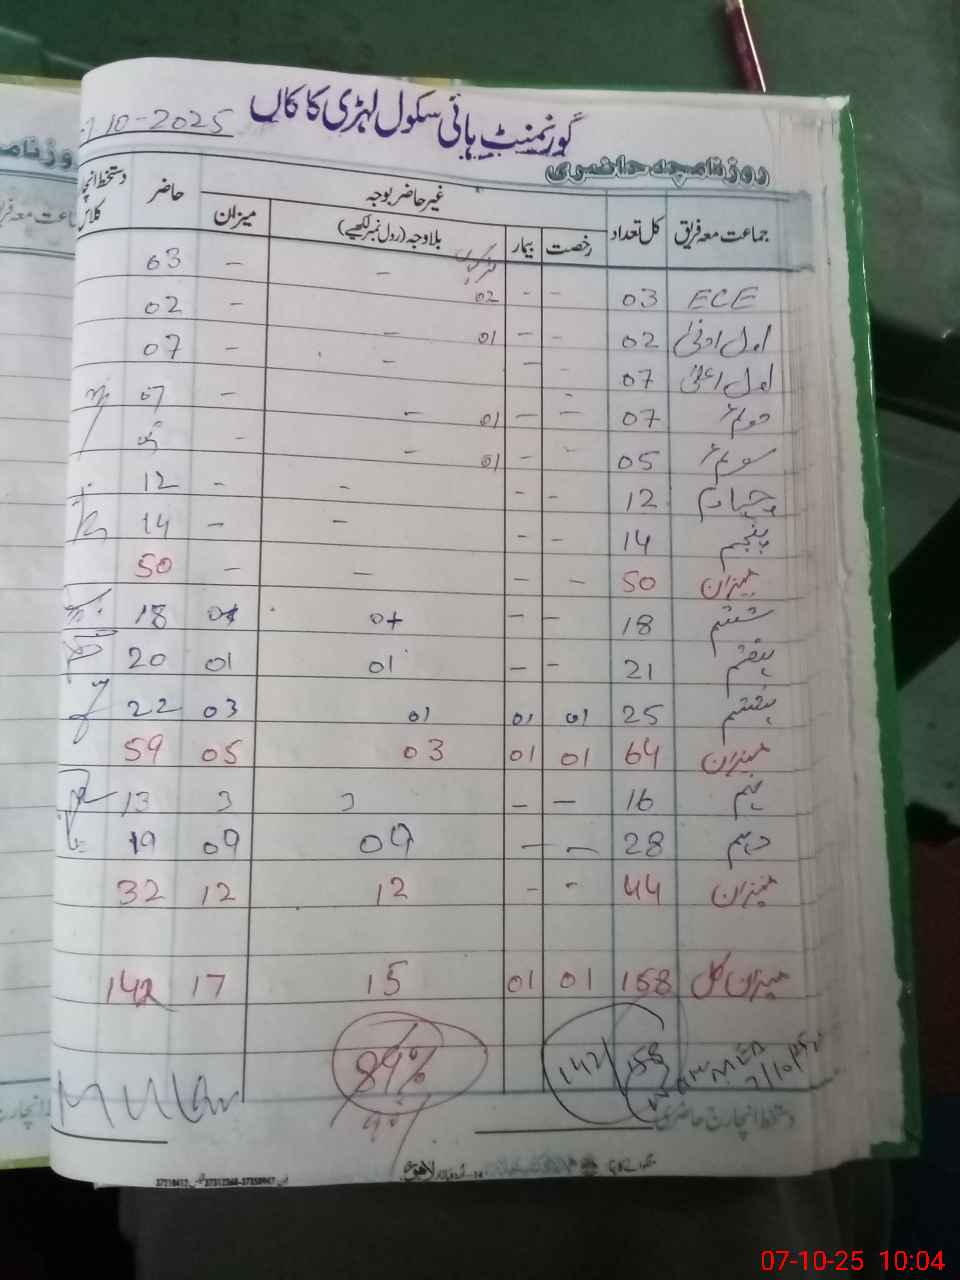 گورنمنٹ ہائی سکول لہڑی کاکاں
7-10-2025
روزنامچہ حاضری
جماعت معہ فریق کل تعداد غیر حاضر بوجہ حاضر دستخط انچارج کلاس
رخصت بیمار بلاوجہ (رول نمبر لکھیے) میزان
ECE 03 - - 02 - - 03
اول ادنیٰ 02 - - 01 - - 02
اول اعلیٰ 07 - - - - 07
دوم 07 - - 01 - - 07
سوم 05 - - 01 - - 05
چہارم 12 - - - - 12
پنجم 14 - - - - 14
میزان 50 - - - - 50
ششم 18 - - 18
ہفتم 21 - - 01 01 20
ہشتم 25 01 01 01 03 22
میزان 64 01 01 03 05 59
نہم 16 - - 3 3 13
دہم 28 - - 09 09 19
میزان 44 - - 12 12 32
میزان کل 158 01 01 15 17 142
142/158
89%
دستخط انچارج حاضری
07-10-25 10:04